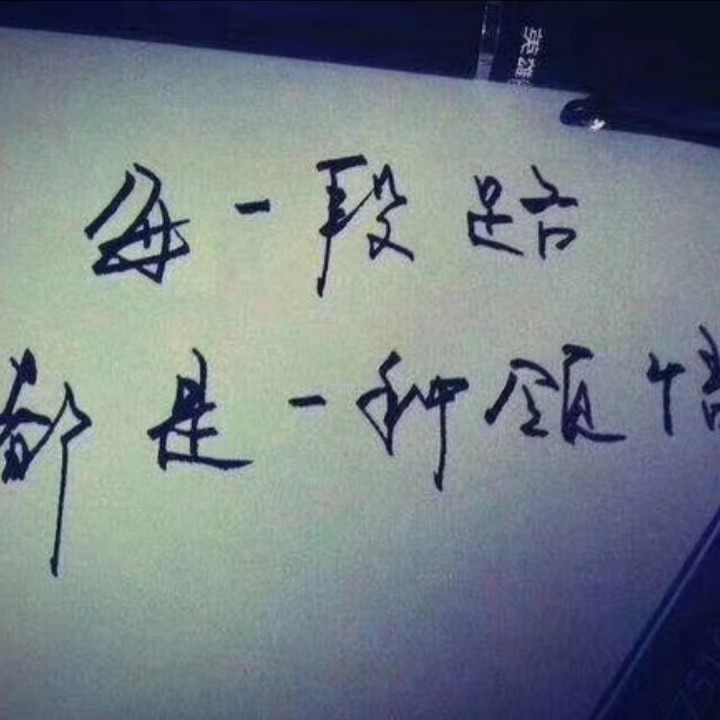 英雄
每一段路
都是一种领悟